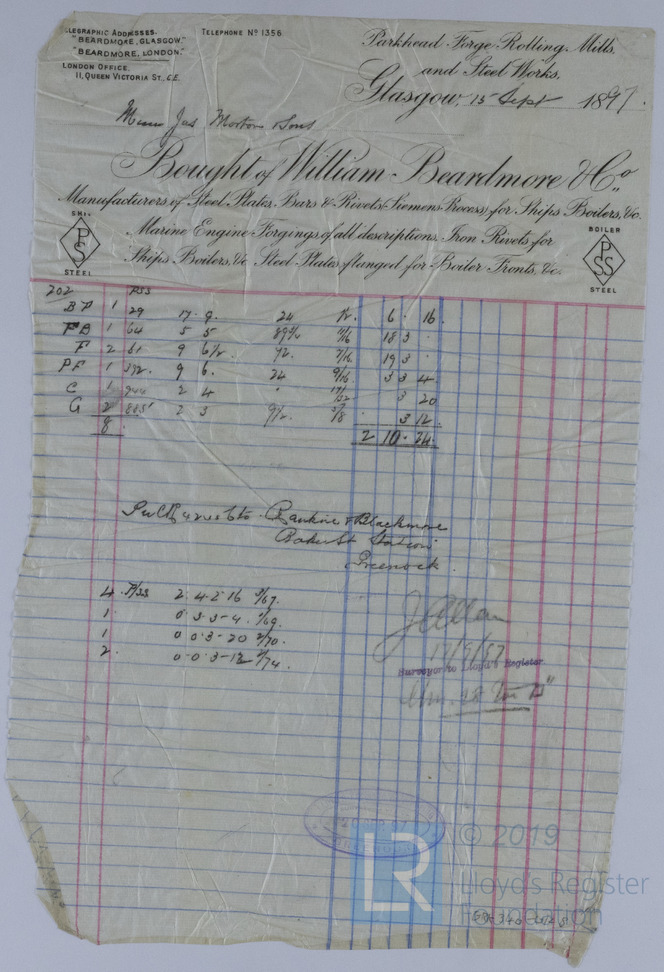 TELEGRAPHIC ADDRESSES.
"BEARDMORE, GLASGOW."
"BEARDMORE, LONDON."
LONDON OFFICE,
11, QUEEN VICTORIA ST., E.C.
TELEPHONE Nº 1356
Parkhead Forge Rolling Mills,
and Steel Works,
Glasgow, 15 Sept 1897.
Messrs Jas Morton & Sons
Bought of William Beardmore & Co.,
Manufacturers of Steel Plates, Bars & Rivets (Siemens Process) for Ships Boilers, &c.
Marine Engine Forgings of all descriptions. Iron Rivets for
Ships Boilers, &c. Steel Plates flanged for Boiler Fronts, &c.
SHIP
PS
STEEL
BOILER
PSS
STEEL
202 PSS
BP 1 29 17 9. 24 6 16
FB 1 64 5 5 7/16 18 3
F 2 61 9 6½ 92. 7/16 19 3
PF 1 392 9 6. 24 9/16 3 3 4
C 1 944 2 4 3 20
G 2 885 2 3 9½ 5/8 3 12
8 2 10 24
Rankine & Blackmore
Station
Greenock.
4 P/SS 2 4 2 16
1 0 3 3 4
1 0 0 3 20
2 0 0 3 12
J Allan
17/9/97
Surveyor to Lloyd's Register.
LR
© 2019
Lloyd's Register
Foundation